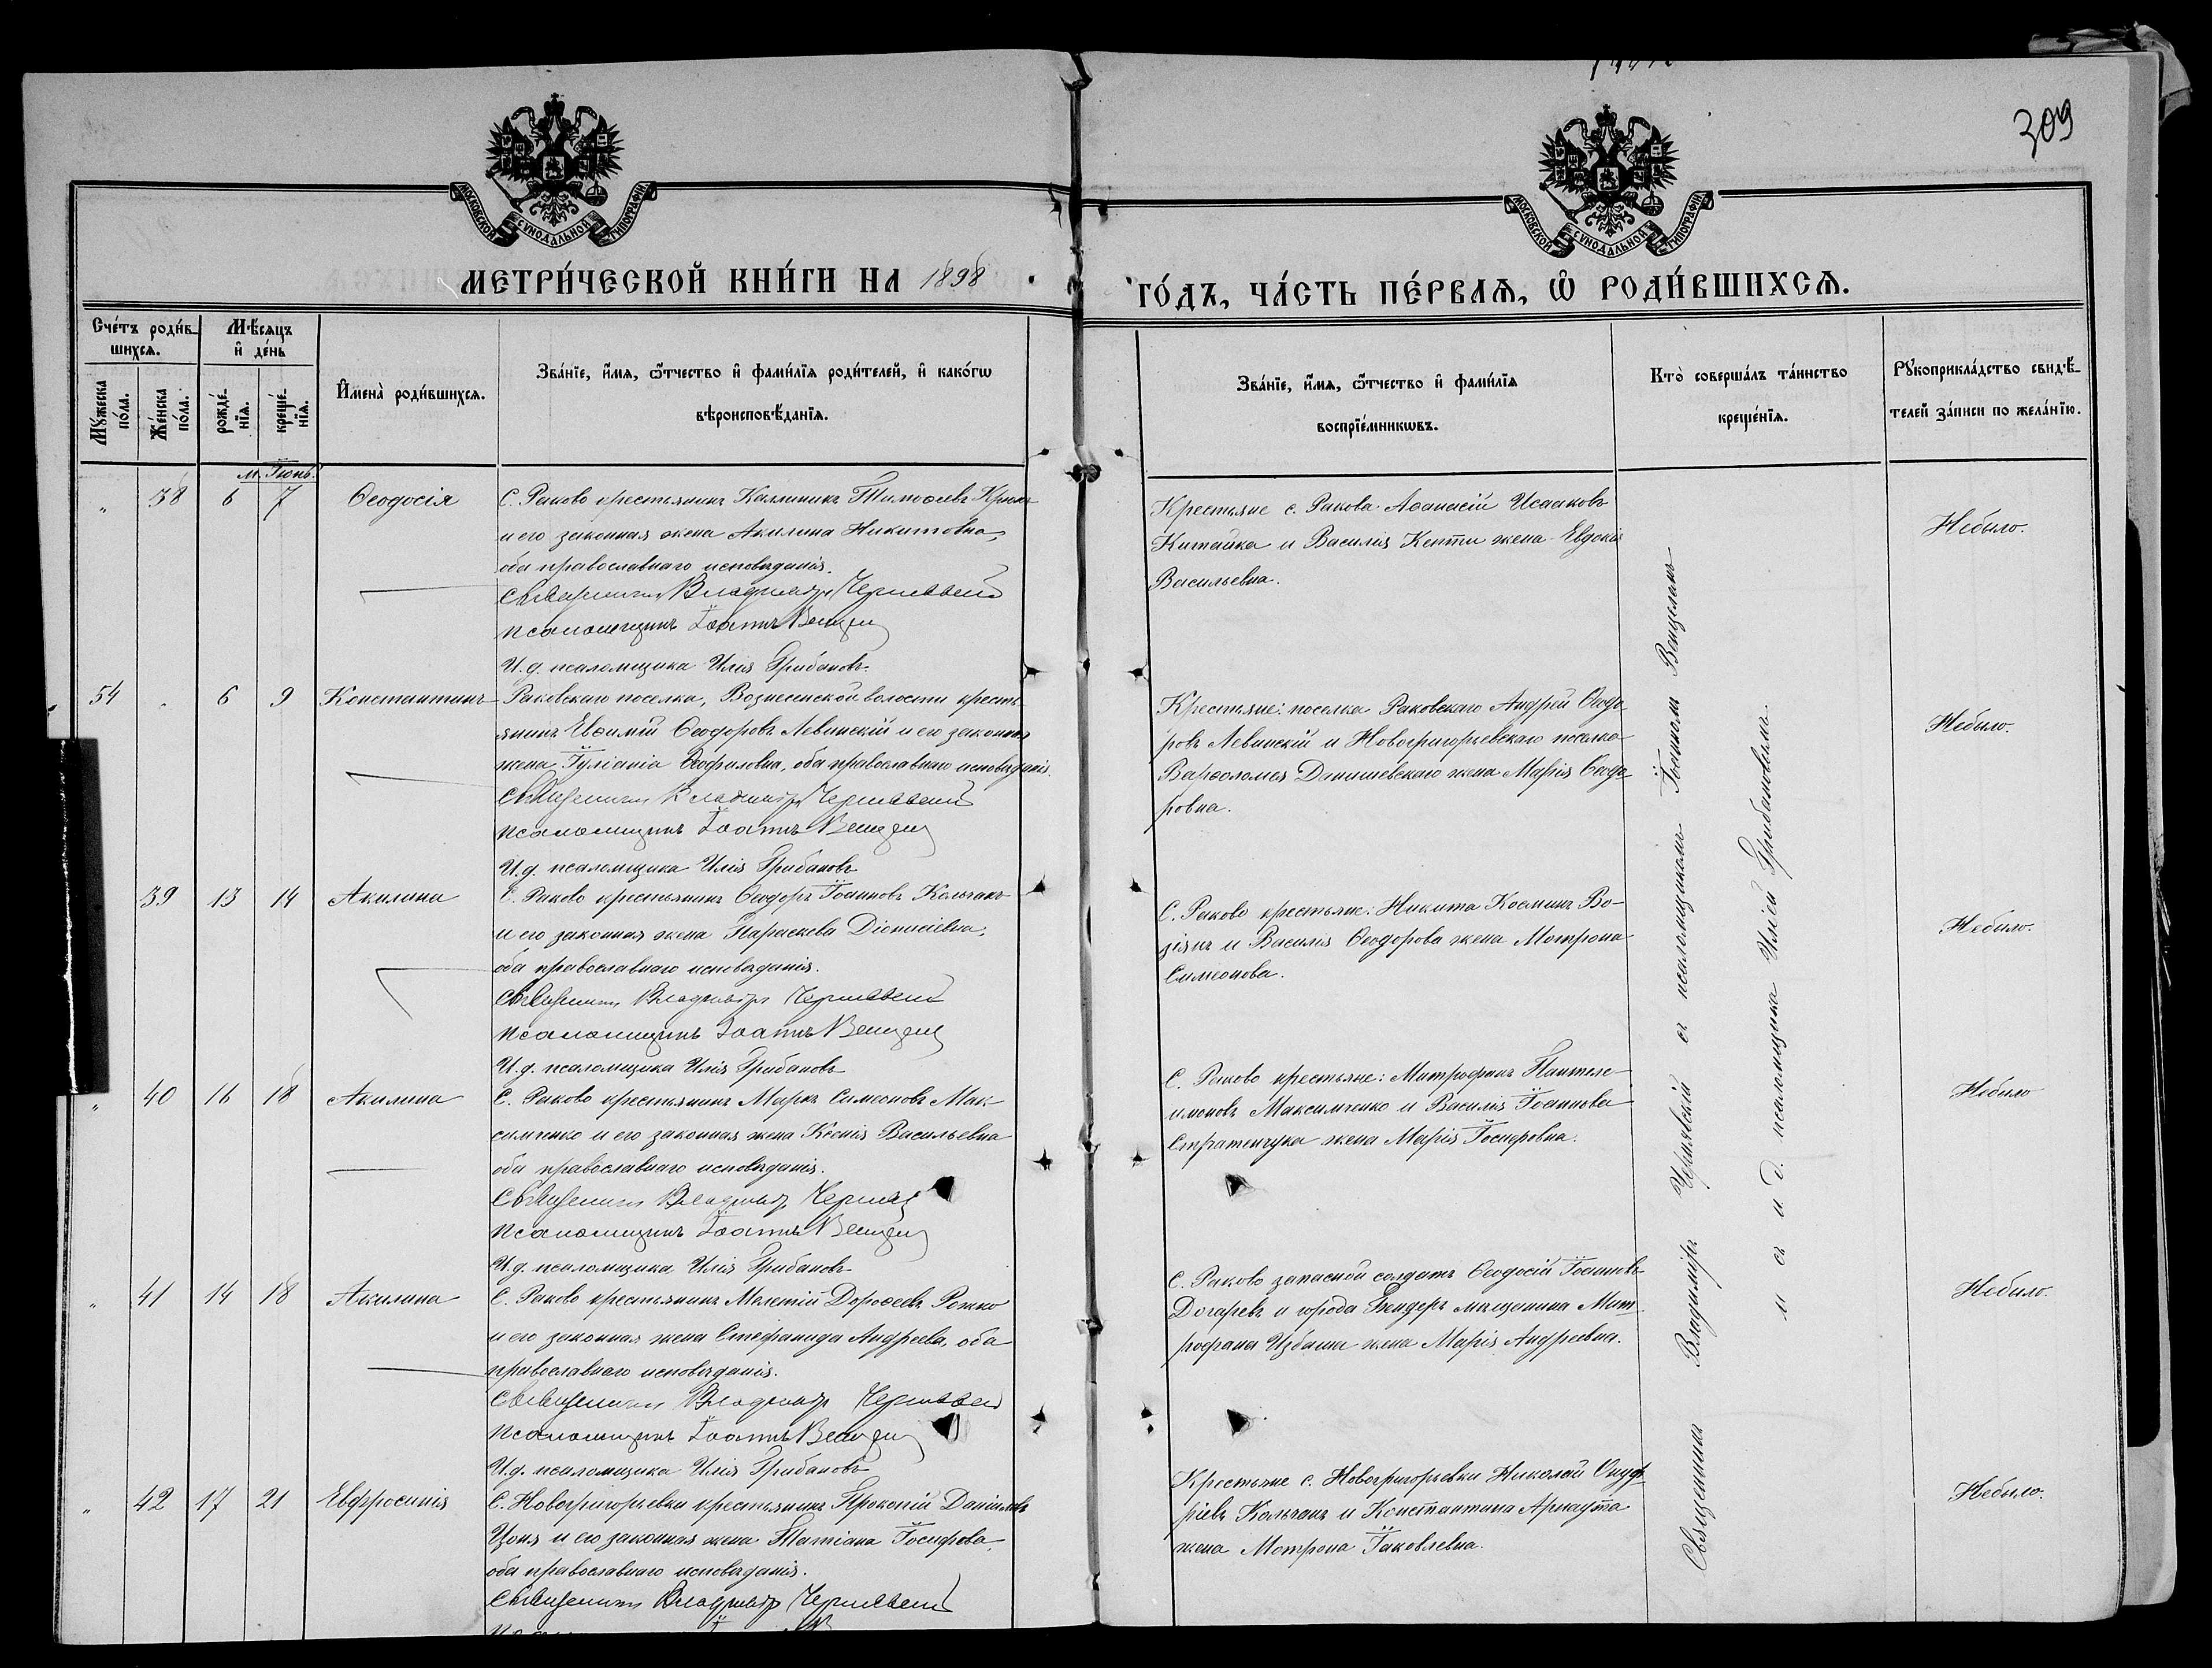 309
МОСКОВСКОЙ СУНОДАЛЬНОЙ ТИПОГРАФІИ
МОСКОВСКОЙ СУНОДАЛЬНОЙ ТИПОГРАФІИ
МЕТРИ́ЧЕСКОЙ КНИ́ГИ НА 1898
ГО́ДЪ, ЧА́СТЬ ПЕ́РВАѦ, Ѽ РОДИ́ВШИХСѦ.
Сче́тъ роди́в-
шихсѧ.
Мꙋ́жеска по́ла.
Же́нска по́ла.
Мѣ́сѧцъ
и҆ де́нь
рожде́-
нїѧ.
креще́-
нїѧ.
И҆мена̀ роди́вшихсѧ.
Зва́нїе, и҆́мѧ, ѻ҆́тчество и҆ фами́лїѧ роди́телей, и҆ како́гѡ
вѣроисповѣ́данїѧ.
Зва́нїе, и҆́мѧ, ѻ҆́тчество и҆ фами́лїѧ
воспрїе́мникѡвъ.
Кто̀ соверша́лъ та́инство
креще́нїѧ.
Рꙋкоприкла́дство свидѣ́-
телей за́писи по жела́нїю.
м. Іюнь.
" 38 6 7 Ѳеодосія
С. Раково крестьянинъ Каллиникъ Тимоѳеевъ
и его законная жена Акилина Никитовна,
оба православнаго исповѣданія.
Священникъ Владиміръ Чернявскій
псаломщикъ Іоаннъ
И. д. псаломщика Илія Грибановъ
Крестьяне с. Ракова Аѳанасій Исааковъ
Китайка и Василія жена Евдокія
Васильевна.
Небыло.
54 " 6 9 Константинъ
Раковскаго поселка, Вознесенской волости кресть-
янинъ Евѳимій Ѳеодоровъ Левинскій и его законная
жена Іуліанія Ѳеофиловна, оба православнаго исповѣданія.
Священникъ Владиміръ Чернявскій
псаломщикъ Іоаннъ
И. д. псаломщика Илія Грибановъ
Крестьяне: поселка Раковскаго Андрей Ѳеодо-
ровъ Левинскій и Новогригорьевскаго поселка
Варѳоломея Данишевскаго жена Марія Ѳеодо-
ровна.
Небыло.
39 13 14 Акилина
С. Раково крестьянинъ Ѳеодоръ Іоанновъ Кольчакъ
и его законная жена Параскева Діонисіевна,
оба православнаго исповѣданія.
Священникъ Владиміръ Чернявскій
псаломщикъ Іоаннъ
И. д. псаломщика Илія Грибановъ
С. Раково крестьяне: Никита Косминъ Во-
зіянъ и Василія Ѳеодорова жена Мотрона
Симеонова.
Небыло.
" 40 16 18 Акилина
С. Раково крестьянинъ Маркъ Симеоновъ Мак-
симченко и его законная жена Ксенія Васильевна
оба православнаго исповѣданія.
Священникъ Владиміръ
псаломщикъ Іоаннъ
И. д. псаломщика Илія Грибановъ
С. Раково крестьяне: Митрофанъ Пантеле-
имоновъ Максимченко и Василія Іоаннова
Стратенчука жена Марія Іосифовна.
Небыло
" 41 14 18 Акилина
С. Раково крестьянинъ Мелетій Дороѳеевъ Рожко
и его законная жена Стефанида Андреева, оба
православнаго исповѣданія.
Священникъ Владиміръ Чернявскій
псаломщикъ Іоаннъ
И. д. псаломщика Илія Грибановъ
С. Раково запасный солдатъ Ѳеодосій Іоанновъ
Догаревъ и города Бендеръ мѣщанина Мит-
рофана Избаша жена Марія Андреевна.
Небыло.
" 42 17 21 Евфросинія
С. Новогригорьевки крестьянинъ Прокопій Даніиловъ
Цоня и его законная жена Татіана Іосифова,
оба православнаго исповѣданія.
Священникъ Владиміръ Чернявскій
Крестьяне с. Новогригорьевки Николай Онуф-
ріевъ Кольчакъ и Константина Арнаута
жена Мотрона Іаковлевна.
Небыло.
Священникъ Владиміръ Чернявскій съ псаломщикомъ Іоанномъ
и съ и. д. псаломщика Иліей Грибановымъ.